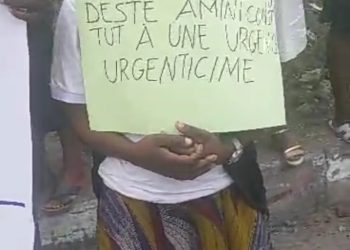 DESTE AMINI CONST
TUT À UNE URGE
URGENTICIME